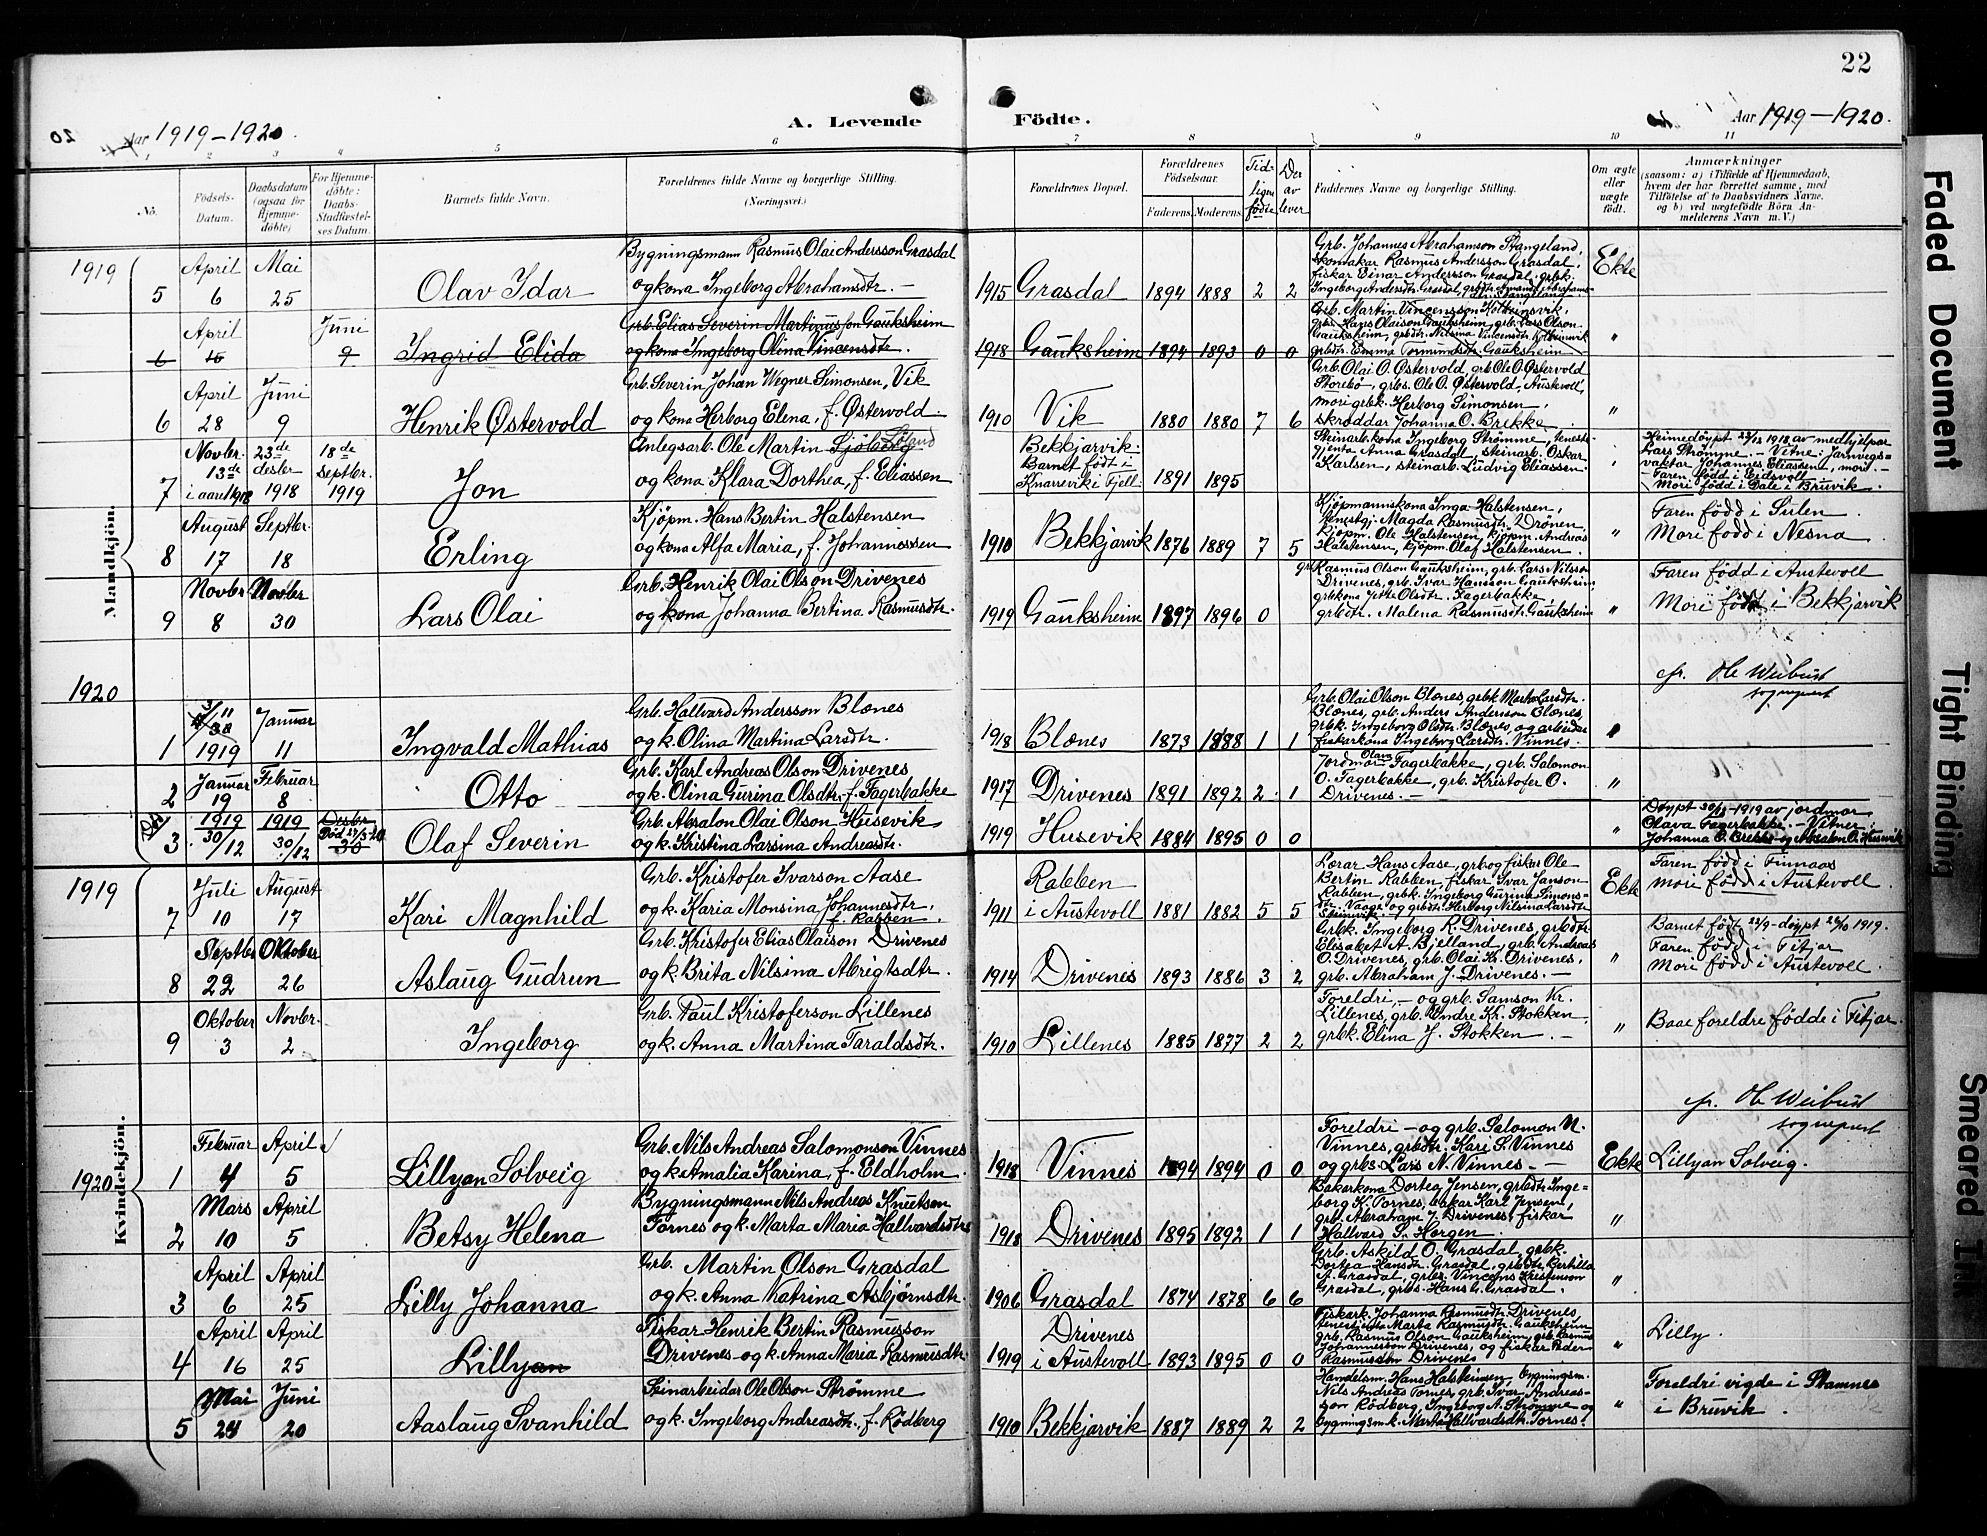 22
20 Aar 1919-1920.
A. Levende
Födte.
Aar 1919-1920.
1 2 3 4 5 6 7 8 9 10 11
No.
Födsels-Datum.
Daabsdatum (ogsaa for Hjemmedöbte)
For Hjemmedöbte: Daabs-Stadfæstelses Datum.
Barnets fulde Navn.
Forældrenes fulde Navne og borgerlige Stilling.
(Næringsvei.)
Forældrenes Bopæl.
Forældrenes Födselsaar.
Faderens. Moderens.
Tidligere födte
Der av lever
Faddernes Navne og borgerlige Stilling.
Om ægte eller uægte födt.
Anmærkninger
(saasom: a) i Tilfælde af Hjemmedaab,
hvem der har forrettet samme, med
Tilföielse af to Daabsvidners Navne,
og b) ved uægtefödte Börn Anmelderens Navn m. V.)
Mandkjön.
1919
5 April 6 Mai 25 Olav Idar
Bygningsmann Rasmus Olai Andersson Grasdal
og kona Ingeborg Abrahamsdtr. —
1915 Grasdal 1894 1888 2 2
Grb. Johannes Abrahamson Stangeland,
skomakar Rasmus Andersson Grasdal,
fiskar Einar Andersson Grasdal, grbk.
Ekte
6 April 10 Juni 9 Ingrid Elida
Grb. Elias Severin Martinusson Gauksheim
og kona Ingeborg Olina Vincensdtr.
1918 Gauksheim 1894 1893 0 0
grbdtr. Emma Tormundsdtr. Gauksheim —
"
6 April 28 Juni 9 Henrik Østervold
Grb. Severin Johan Wegner Simonsen, Vik
og kona Herborg Elena, f. Østervold.
1910 Vik 1880 1880 7 6
Grb. Olai O. Østervold, grb Ole O. Østervold
Storebø, grbs. Ole O. Østervold, Austevoll,
mori grbk. Herborg Simonsen,
skrøddar Johanna O. Brekke
"
7 Novbr. 13de i aaret 1918 23de desbr 1918 18de Septbr. 1919 Jon
Anlegsarb. Ole Martin Sjøberg Løland
og kona Klara Dorthea, f. Eliassen
Bekkjarvik.
Barnet født i
Knarrevik i Fjell. 1891 1895
Steinarb.kona Ingeborg Strømme, tenestgjenta Anna Grasdal, steinarb. Oskar
Karlsen, steinarb. Ludvig Eliassen.
Heimedøypt 23/12 1918 av medhjelpar
Lars Strømme. — Vitne: Jarnvegsvaktar Johannes Eliassen, mori. —
Faren född i Eidsvoll
Mori född i Dale i Bruvik.
8 August 17 Septbr. 18 Erling
Kjøpm. Hans Bertin Halstensen
og kona Alfa Maria, f. Johannessen
1910 Bekkjarvik 1876 1889 7 5
Kjøpmannskona Inga Halstensen,
tenestgj. Magda Rasmusdtr. Drønen,
kjøpm. Ole Halstensen, kjøpm. Andreas
Halstensen, kjøpm. Olaf Halstensen.
"
Faren född i Sulen.
Mori född i Nesna
9 Novbr 8 Novbr 30 Lars Olai
Grb. Henrik Olai Olson Drivenes
og kona Johanna Bertina Rasmusdtr.
1919 Gauksheim 1897 1896 0
grb Rasmus Olson Gauksheim, grb. Lars Nilsson
Drivenes, grb. Ivar Hansson Gauksheim,
grbkona Jette Olsdtr. Fagerbakke,
grbdtr. Malena Rasmusdtr Gauksheim
"
Faren född i Austevoll
Mori född i Bekkjarvik
Ole Weibust
sogneprest
1920
1 1919 Januar 11 Ingvald Mathias
Grb. Hallvard Andersson Blænes
og k. Olina Martina Larsdtr.
1918 Blænes 1873 1888 1 1
Grb. Olai Olson Blænes, grbk Marta Larsdtr.
Blænes, grb. Anders Andersson Blænes,
grbk. Ingeborg Olsdtr. Blænes, og arbeidar
fiskarkona Ingeborg Larsdtr. Vinnes.
"
2 Januar 19 Februar 8 Otto
Grb. Karl Andreas Olson Drivenes
og k. Olina Gurina Olsdtr. f. Fagerbakke
1917 Drivenes 1891 1892 2 1
Jordmor Olava Fagerbakke, grb. Salomon
O. Fagerbakke, grb. Kristofer O.
Drivenes. —
"
3 1919 30/12 1919 30/12 Olaf Severin
Grb. Absalon Olai Olson Husevik
og k. Kristina Larsina Andreasdtr.
1919 Husevik 1884 1895 0 0
"
Døypt 30/12-1919 av jordmor
Olava Fagerbakke. — Vitner:
Johanna O. Brekke og Absalon O. Husevik
Kvindekjön.
1919
7 Juli 10 August 17 Kari Magnhild
Grb. Kristofer Ivarson Aase
og k. Karia Monsina Johannesdtr.
f. Rabben.
1911 Rabben
i Austevoll 1881 1882 5 5
Lærar Hans Aase, grb og fiskar Ole
Bertin Rabben, fiskar Ivar Janson
Rabben, grbk. Ingeborg Gurina Simonsdtr. Vaage og grbdtr. Herborg Nilsina Larsdtr
Steinvik.
Ekte
Faren född i Finnaas
mori född i Austevoll.
8 Septbr 22 Oktober 26 Aslaug Gudrun
Grb. Kristofer Elias Olaison Drivenes
og k. Brita Nilsina Abrigtsdtr.
1914 Drivenes 1893 1886 3 2
Grbk. Ingeborg R. Drivenes, grbdtr
Elisabet A. Bjelland, grb. Andreas
O. Drivenes, grb. Olai Kr. Drivenes,
grb. Abraham J. Drivenes. —
"
Barnet født 22/9 - døypt 26/10 1919.
Faren född i Fitjar
Mori född i Austevoll.
9 Oktober 3 Novbr. 2 Ingeborg
Grb. Paul Kristoferson Lillenes
og k. Anna Martina Taraldsdtr.
1910 Lillenes 1885 1877 2 2
Foreldri, — og grb. Samson Kr.
Lillenes, grb. Andre Kr. Stokken,
grbk. Elina J. Stokken. —
"
Baae foreldre födde i Fitjar.
Ole Weibust
sogneprest
1920
1 Februar 4 April 5 Lillyan Solveig
Grb. Nils Andreas Salomonson Vinnes
og k. Amalia Karina, f. Eldholm.
1918 Vinnes 1894 1894 0 0
Foreldri — og grb. Salomon N.
Vinnes, grbdtr. Kari S. Vinnes
og grbs. Lars N. Vinnes. —
Ekte
Lillyan Solveig.
2 Mars 10 April 5 Betsy Helena
Bygningsmann Nils Andreas Knutsen
Tornes og k. Marta Maria Hallvardsdtr
1918 Drivenes 1895 1892 1 1
Bakarkona Dortea Jensen, grbdtr Ingeborg K. Tornes, bakar Karl Jensen,
grb. Abraham J. Drivenes, fiskar
Hallvard S. Horgen.
"
3 April 6 April 25 Lilly Johanna
Grb. Martin Olson Grasdal
og k. Anna Katrina Asbjørnsdtr.
1906 Grasdal 1874 1878 6 6
Grb. Askild O. Grasdal, grbk.
Dortea Hansdtr. Grasdal, grbdtr. Bertilla
A. Grasdal, grbs. Vincens Kristenson
Grasdal, grbs. Hans G. Grasdal.
"
4 April 16 April 25 Lillyan
Fiskar Henrik Bertin Rasmusson
Drivenes og k. Anna Maria Rasmusdtr.
1919 Drivenes
i Austevoll 1893 1895 0 0
Fiskark. Johanna Rasmusdtr. Drivenes,
tenestjenta Marta Rasmusdtr. Gauksheim
grb. Rasmus Olson Gauksheim, grb. Rasmus
Johannesson Drivenes, og fiskar Peder
Rasmusson Drivenes
"
Lilly.
5 Mai 24 Juni 20 Aaslaug Svanhild
Steinarbeidar Ole Olson Strømme
og k. Ingeborg Andreasdtr. f. Rödberg
1910 Bekkjarvik 1887 1889 2 2
Handelsm. Hans Halsteinsen, bygningsm.
Nils Andreas Tornes, grb. Ivar Andreasson Rödberg, Ingeborg A. Strømme og
bygningsm.k. Marta Hallvardsdtr. Tornes.
"
Foreldri vigde i Stamnes
i Bruvik.
Faded Document
Tight Binding
Smeared Ink